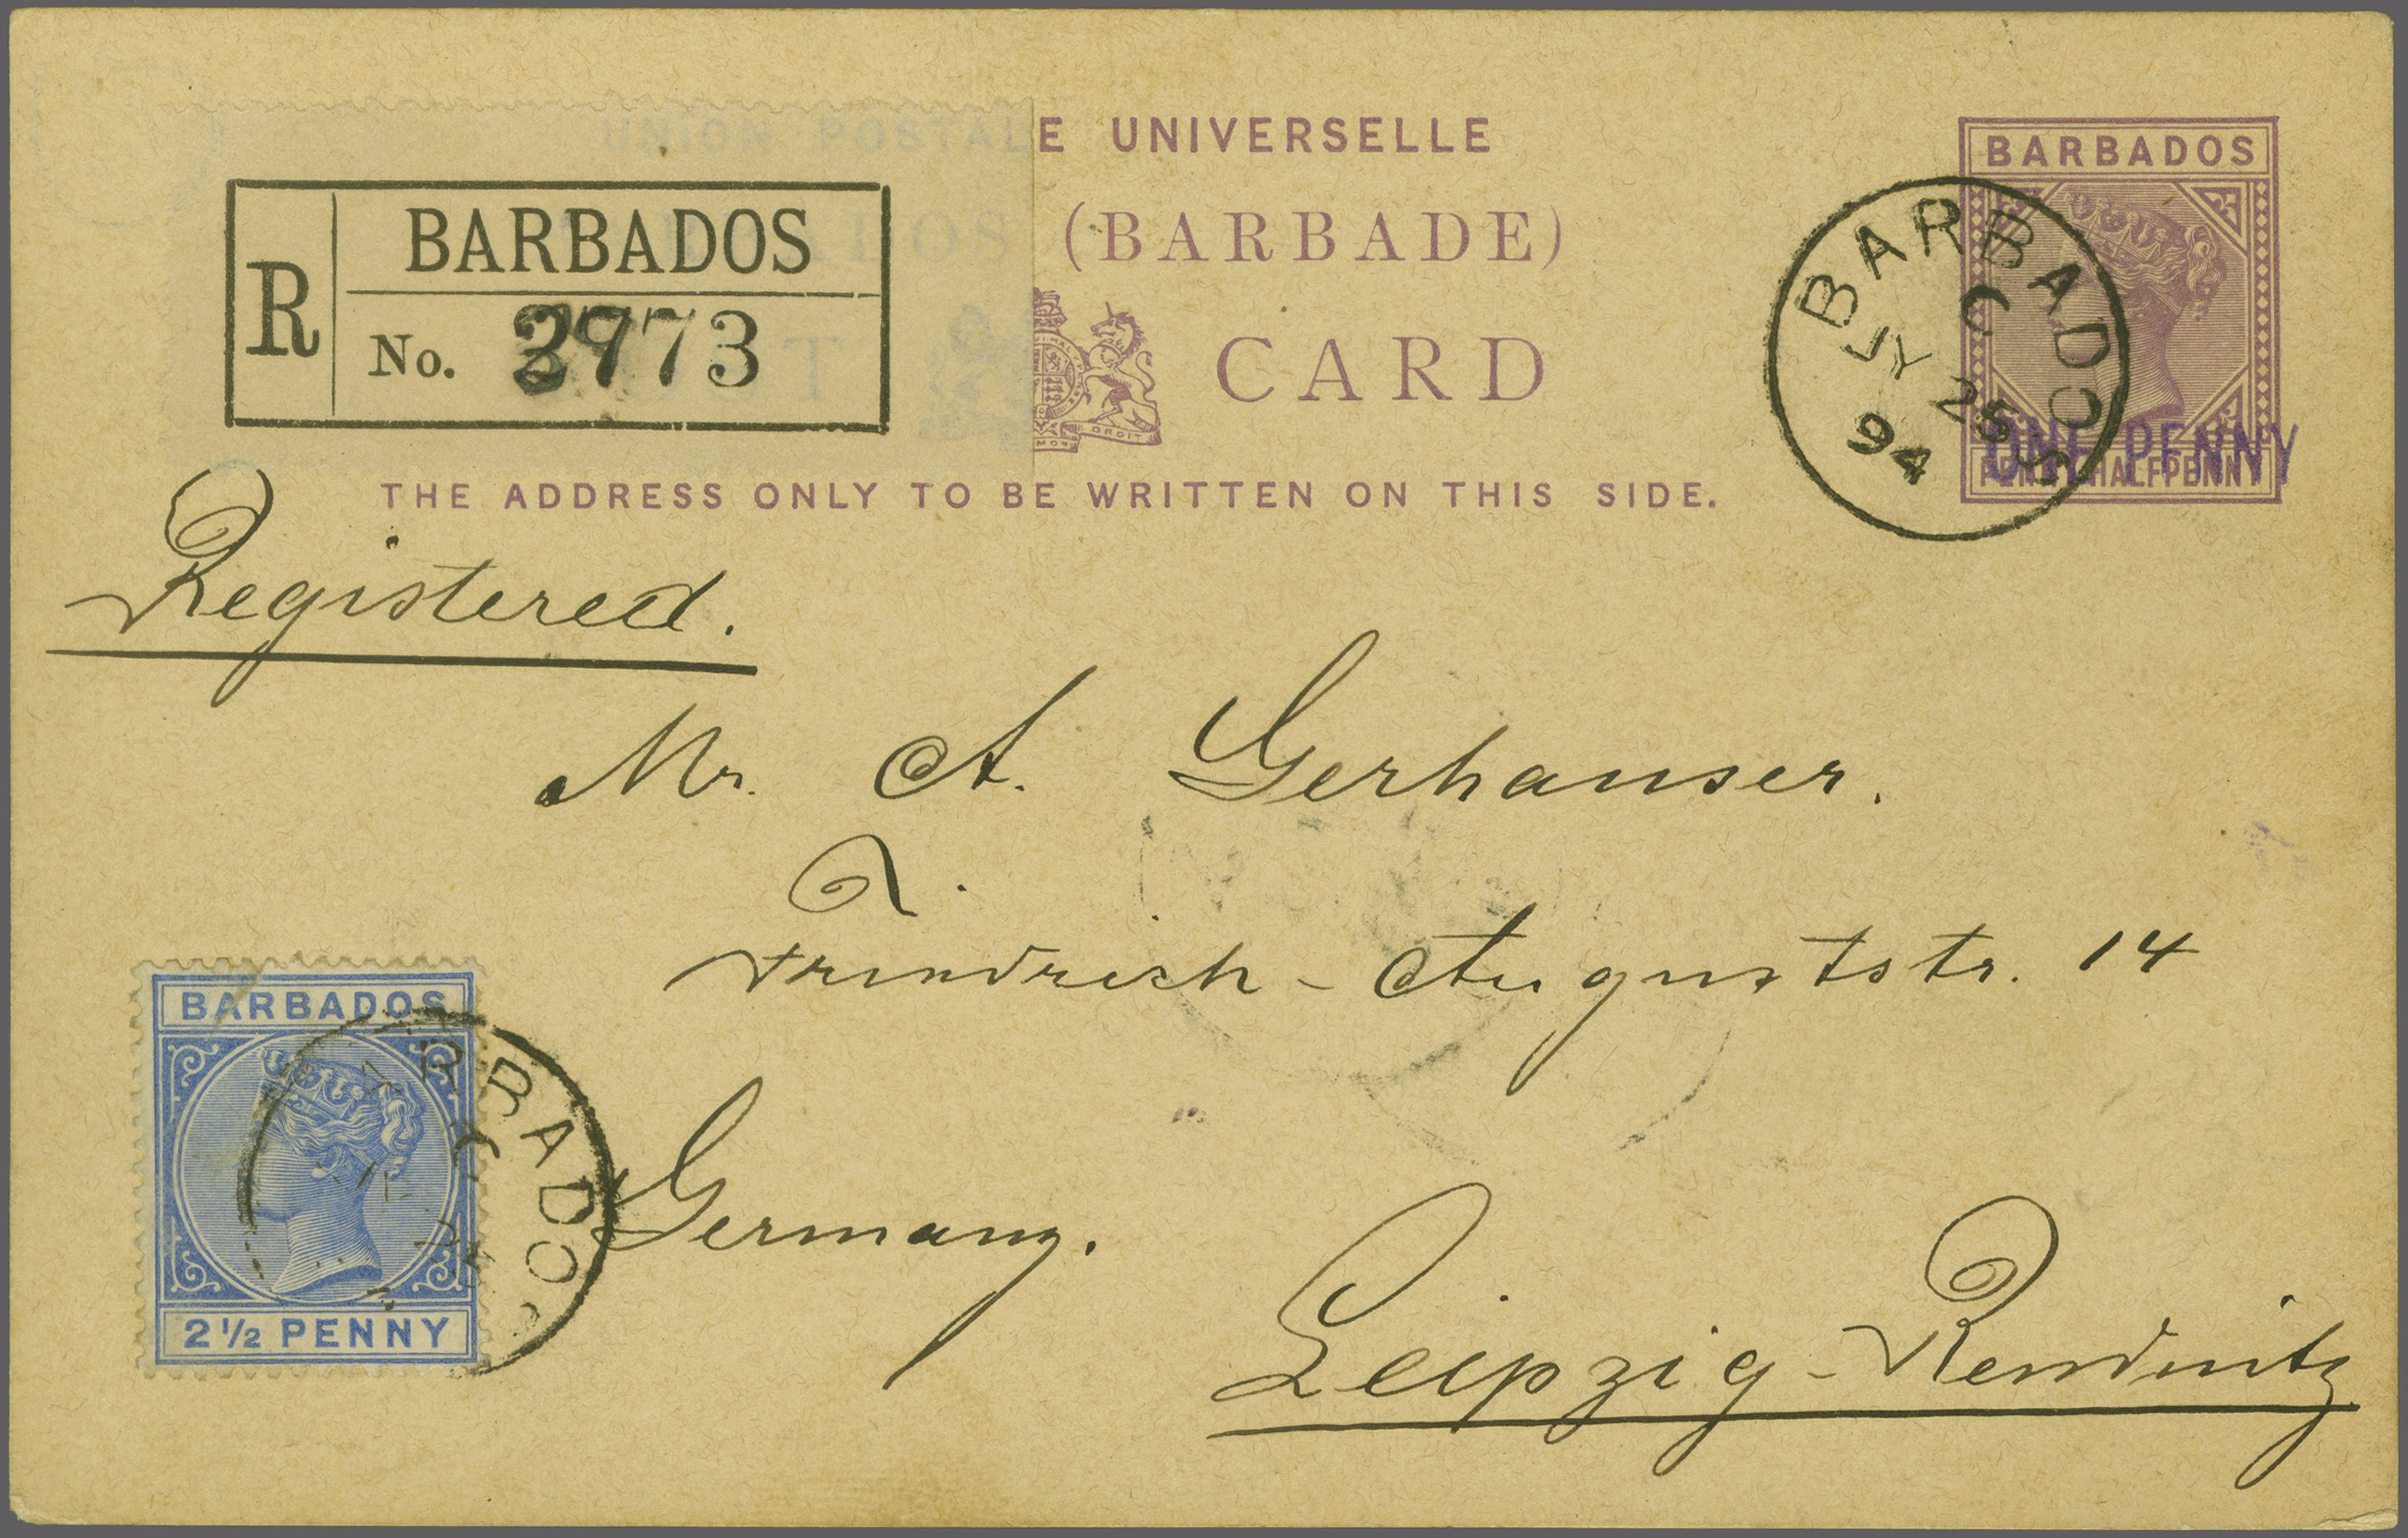 UNION POSTALE UNIVERSELLE
OS (BARBADE)
T CARD
THE ADDRESS ONLY TO BE WRITTEN ON THIS SIDE.
R
BARBADOS
No. 2973
BARBADOS
ONE PENNY
PENNY HALFPENNY
BARBADOS
C
JY 25
94
Registered.
Mr. A. Gerhauser.
Friedrich-Auguststr. 14
Germany.
Leipzig-Reudnitz
BARBADOS
2½ PENNY
RBADO
C